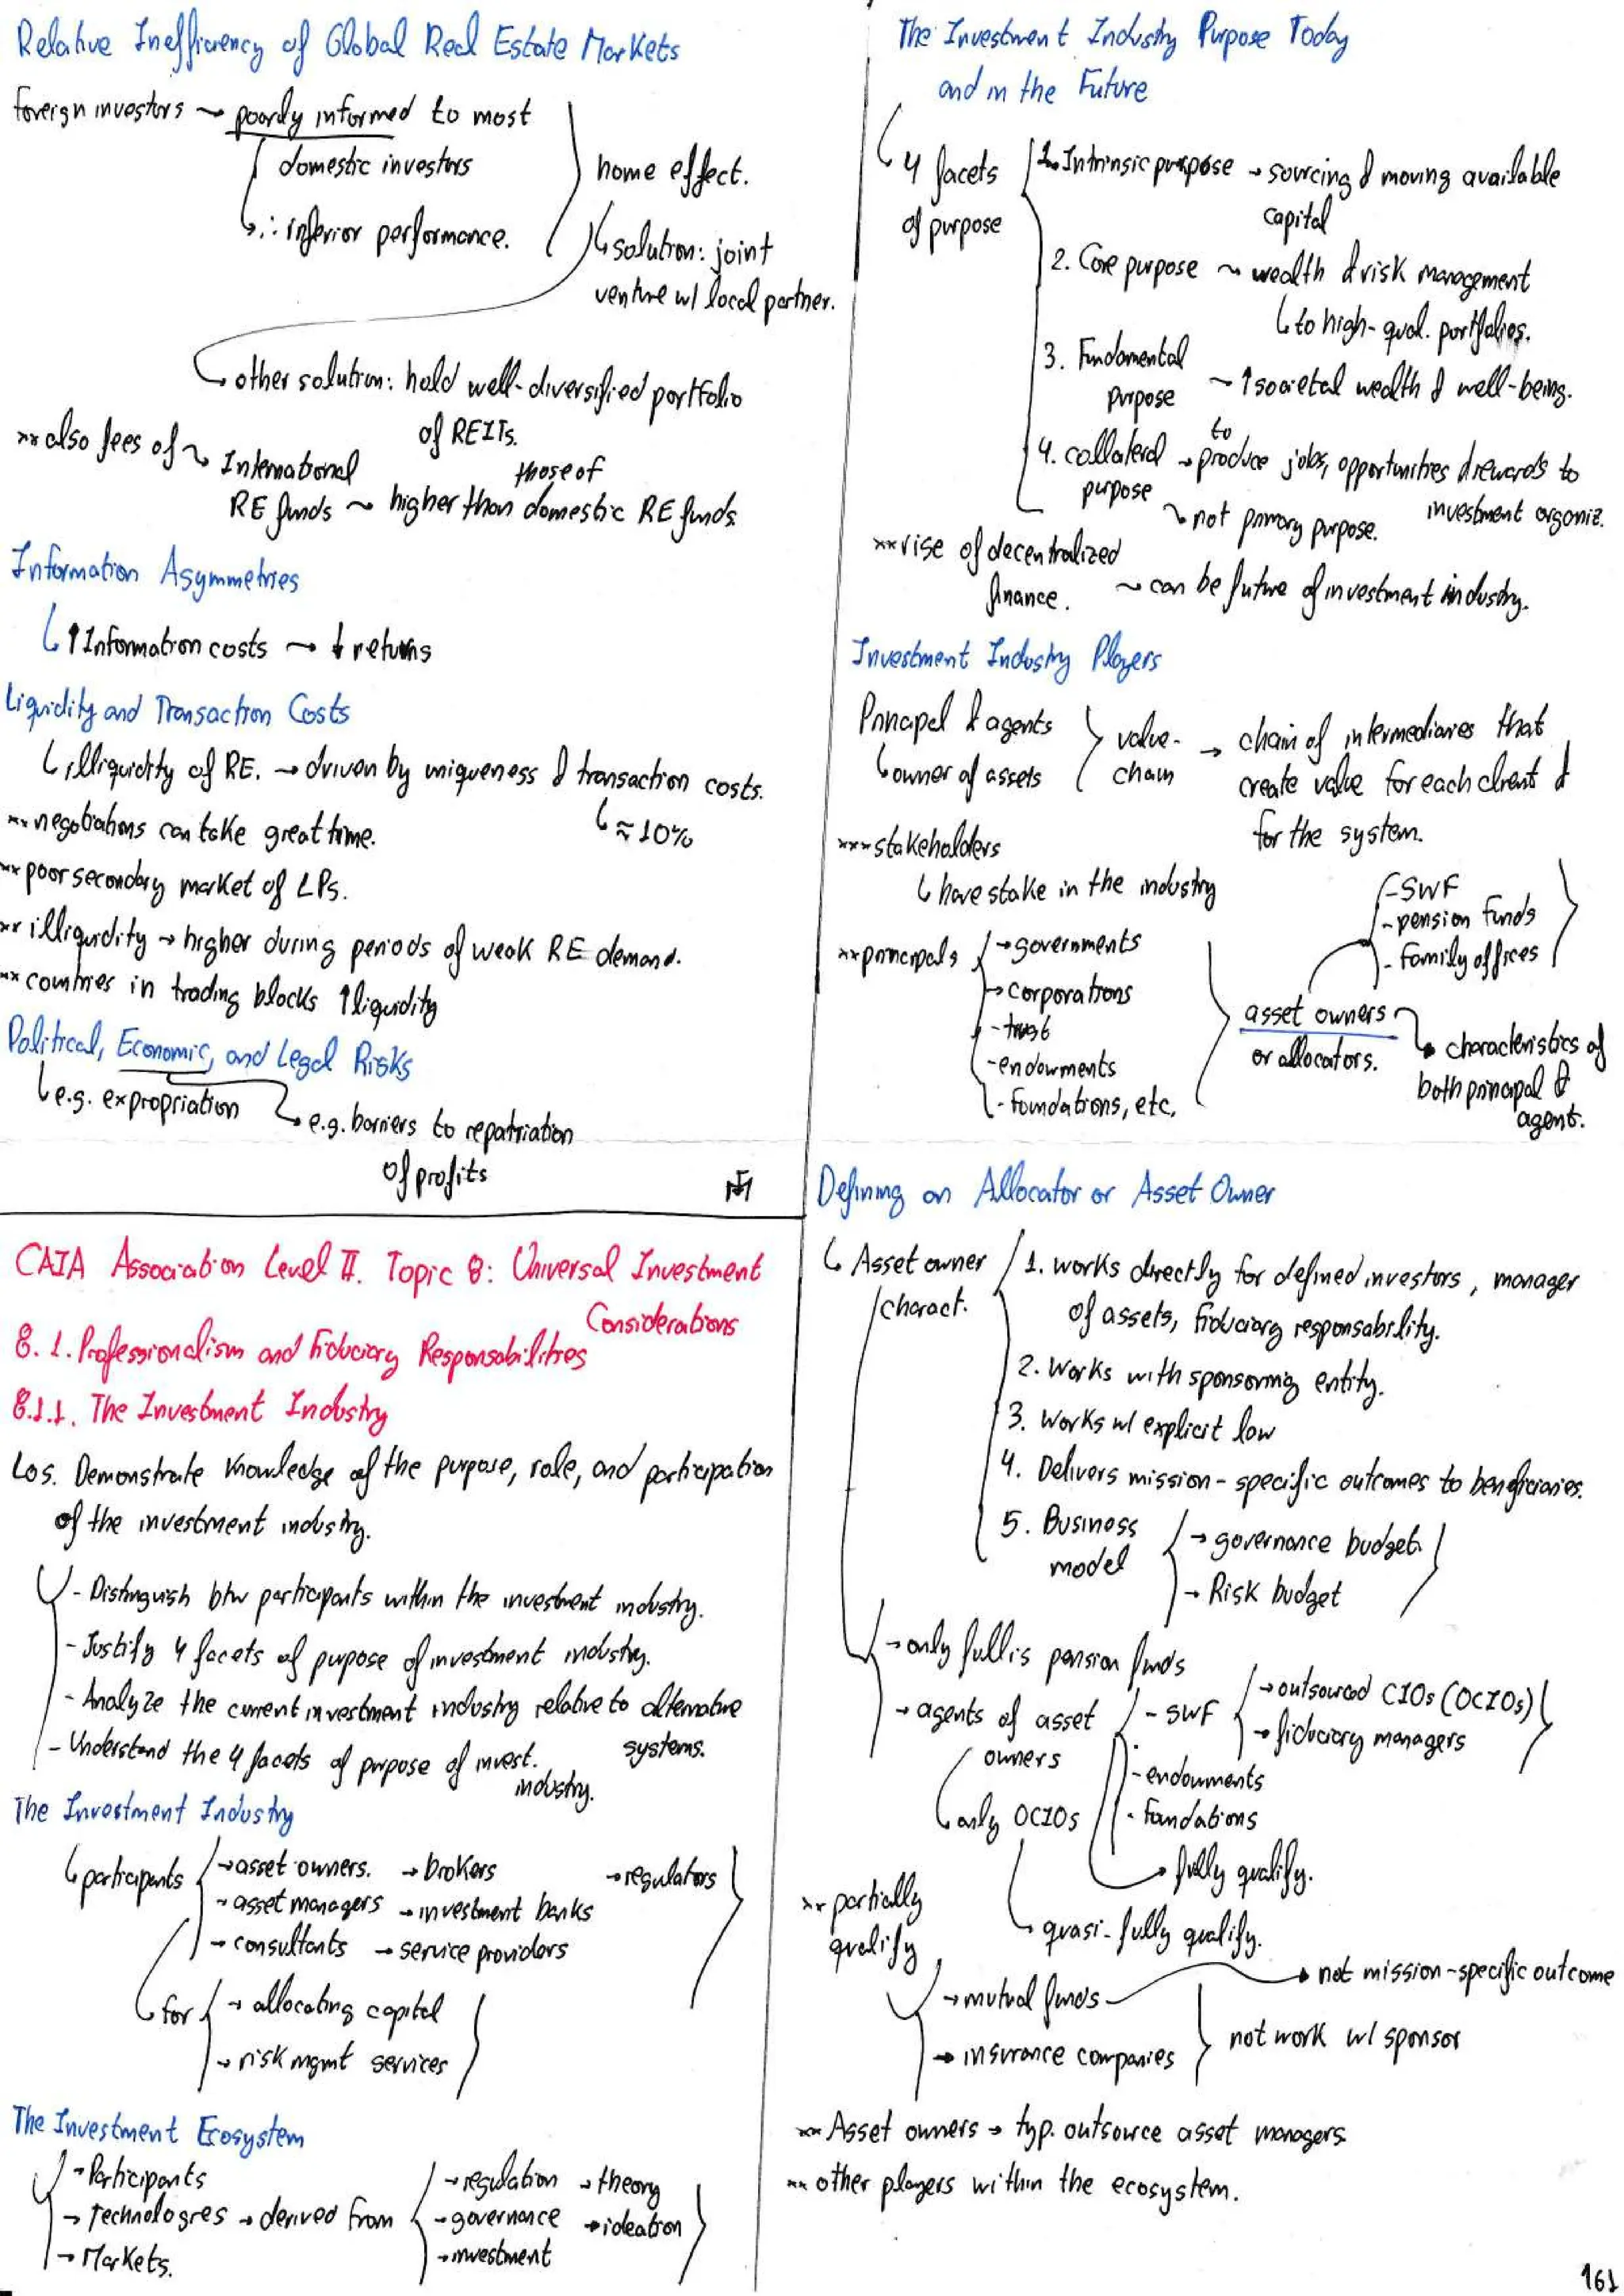 Relative Inefficiency of Global Real Estate Markets
foreign investors → poorly informed to most
domestic investors
∴ inferior performance.
home effect.
solution: joint
venture w/ local partner.
other solution: hold well-diversified portfolio
of REITs.
** also fees of
International
RE funds ~ higher than those of domestic RE funds
Information Asymmetries
↑ Information costs → ↓ returns
Liquidity and Transaction Costs
illiquidity of RE. → driven by uniqueness & transaction costs.
≈ 10%
** negotiations can take great time.
** poor secondary market of LPs.
** illiquidity → higher during periods of weak RE demand.
** countries in trading blocks ↑ liquidity
Political, Economic, and Legal Risks
e.g. expropriation
e.g. barriers to repatriation
of profits
CAIA Association Level II. Topic 8: Universal Investment
Considerations
8.1. Professionalism and Fiduciary Responsabilities
8.1.1. The Investment Industry
Los. Demonstrate knowledge of the purpose, role, and participation
of the investment industry.
- Distinguish btw participants within the investment industry.
- Justify 4 facets of purpose of investment industry.
- Analyze the current investment industry relative to alternative
systems.
- Understand the 4 facets of purpose of invest.
industry.
The Investment Industry
participants
→ asset owners. → brokers → regulators
→ asset managers → investment banks
→ consultants → service providers
for
→ allocating capital
→ risk mgmt services
The Investment Ecosystem
→ Participants
→ Technologies → derived from
→ Markets.
→ regulation → theory
→ governance → ideation
→ investment
The Investment Industry Purpose Today
and in the Future
4 facets
of purpose
1. Intrinsic purpose → sourcing & moving available
capital
2. Core purpose ~ wealth & risk management
to high-qual. portfolios.
3. Fundamental
purpose
~ ↑ societal wealth & well-being.
4. collateral
purpose
→ to produce jobs, opportunities & rewards to
investment organiz.
not primary purpose.
** rise of decentralized
finance.
~ can be future of investment industry.
Investment Industry Players
Principal & agents
owner of assets
value-
chain
→ chain of intermediaries that
create value for each client &
for the system.
*** stakeholders
have stake in the industry
** principals
→ governments
→ corporations
- trust
- endowments
- foundations, etc.
asset owners
or allocators.
- SWF
- pension funds
- family offices
characteristics of
both principal &
agent.
Defining an Allocator or Asset Owner
Asset owner
charact.
1. works directly for defined investors, manager
of assets, fiduciary responsability.
2. Works with sponsoring entity.
3. Works w/ explicit law
4. Delivers mission-specific outcomes to beneficiaries.
5. Business
model
→ governance budget.
→ Risk budget
→ only full is pension funds
→ agents of asset
owners
only OCIOs
- SWF
- endowments
- foundations
→ outsourced CIOs (OCIOs)
→ fiduciary managers
→ fully qualify.
quasi-fully qualify.
** partially
qualify
→ mutual funds
→ not mission-specific outcome
→ insurance companies
not work w/ sponsor
** Asset owners → typ. outsource asset managers
** other players within the ecosystem.
161